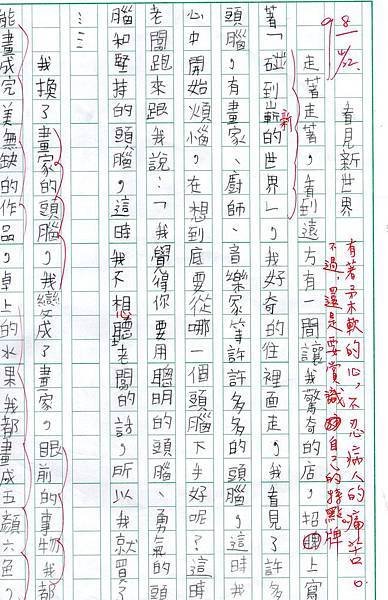 98
有著柔軟的心,不忍病人的痛苦。
不過,還是要賞識自己的特點
看見新世界
走著走著,看到遠方有一間讓我驚奇的店,招牌上寫
著「碰到嶄新的世界」,我好奇的往裡面走,我看見了許多
頭腦,有畫家、廚師、音樂家等許許多多的頭腦,這時我
心中開始煩惱,在想到底要從哪一個頭腦下手好呢?這時
老闆跑來跟我說:「我覺得你要用聰明的頭腦、勇氣的頭
腦和堅持的頭腦,這時我不想聽老闆的話,所以我就買了
……
我換了畫家的頭腦,我變成了畫家,眼前的事物我都
能畫成完美無缺的作品,卓上的水果我都畫成五顏六色,